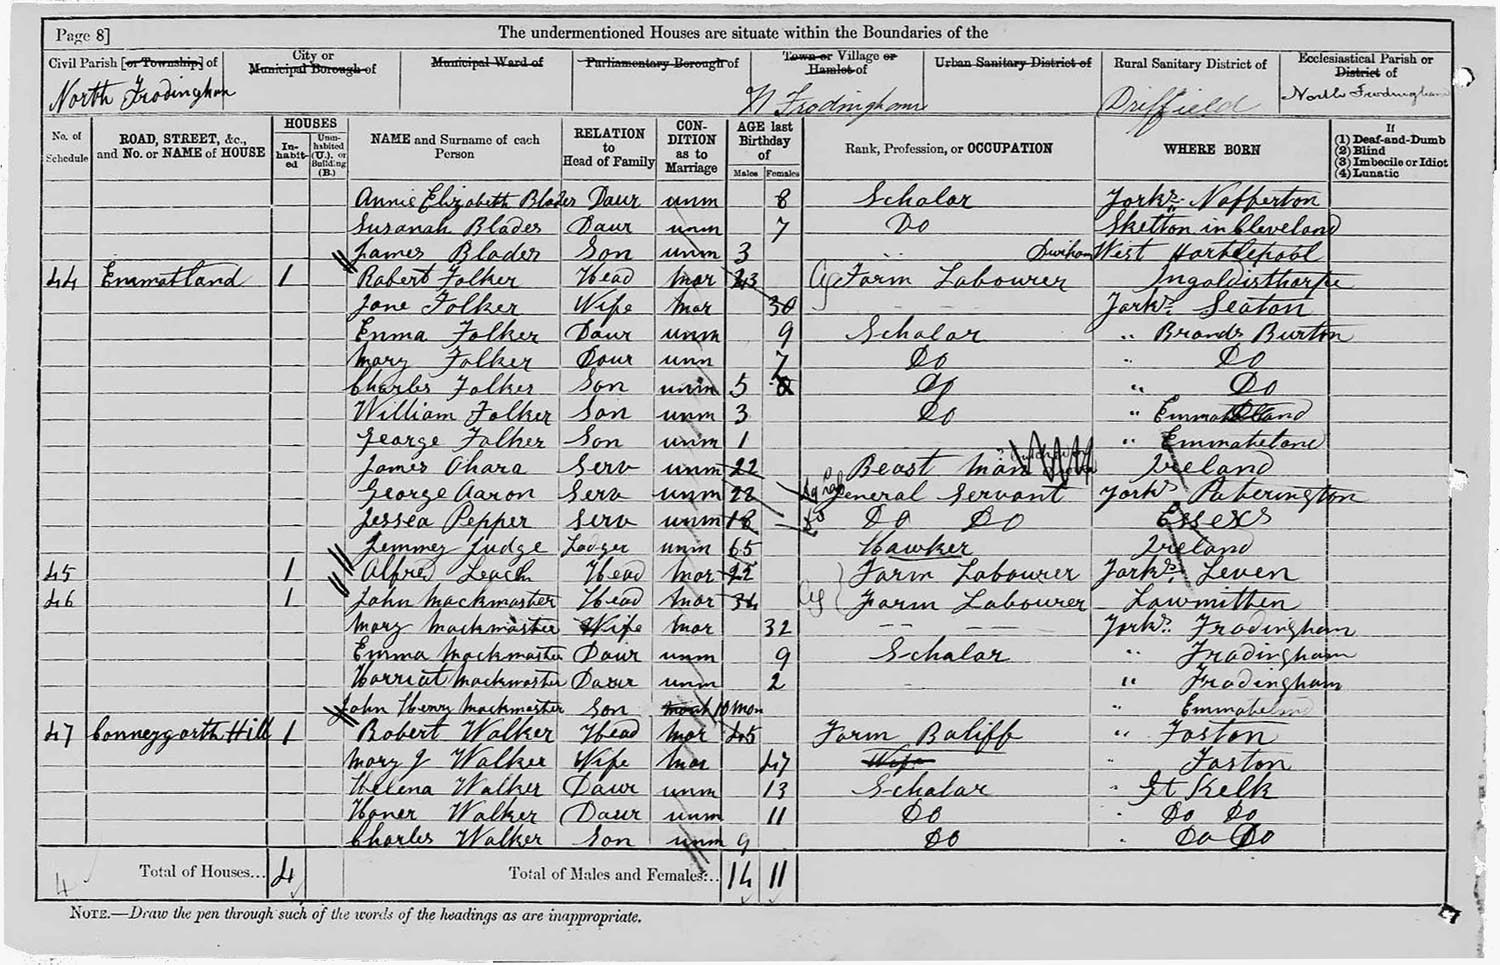 Page 8] The undermentioned Houses are situate within the Boundaries of the
Civil Parish [or Township] of City or Municipal Borough of Municipal Ward of Parliamentary Borough of Town or Village or Hamlet of Urban Sanitary District of Rural Sanitary District of Ecclesiastical Parish or District of
North Frodingham N Frodingham Driffield North Frodingham
No. of Schedule ROAD, STREET, &c., and No. or NAME of HOUSE HOUSES Inhabited Uninhabited (U.), or Building (B.) NAME and Surname of each Person RELATION to Head of Family CONDITION as to Marriage AGE last Birthday of Males Females Rank, Profession, or OCCUPATION WHERE BORN If (1) Deaf-and-Dumb (2) Blind (3) Imbecile or Idiot (4) Lunatic
Annie Elizabeth Blades Daur unm 8 Scholar Yorks Nafferton
Susanah Blades Daur unm 7 Do Skelton in Cleveland
James Blades Son unm 3 Durham West Hartlepool
44 Emmotland 1 Robert Folker Head Mar 43 Ag Farm Labourer Ingoldisthorpe
Jane Folker Wife Mar 30 Yorks Seaton
Emma Folker Daur unm 9 Scholar " Brands Burton
Mary Folker Daur unm 7 Do " Do
Charles Folker Son unm 5 Do " Do
William Folker Son unm 3 Do "
George Folker Son unm 1 "
James Ohara Serv unm 22 Beast Man Ireland
George Aaron Serv unm 28 General Servant Yorks Patrington
Jessea Pepper Serv unm 18 Do Do Essex
Jemmey Judge Lodger unm 65 Hawker Ireland
45 1 Alfred Leach Head Mar 22 Farm Labourer Yorks Leven
46 1 John Mackmaster Head Mar 34 Ag Farm Labourer
Mary Mackmaster Wife Mar 32 Yorks Frodingham
Emma Mackmaster Daur unm 9 Scholar " Frodingham
Harriat Mackmaster Daur unm 2 " Frodingham
John Henry Mackmaster Son 10 Mon "
47 Conneygarth Hill 1 Robert Walker Head Mar 45 Farm Baliff " Foston
Mary J Walker Wife Mar 47 Wife " Foston
Helena Walker Daur unm 13 Scholar " Gt Kelk
Honer Walker Daur unm 11 Do " Do Do
Charles Walker Son unm 9 Do " Do Do
4 Total of Houses... 4 Total of Males and Females... 14 11
NOTE.—Draw the pen through such of the words of the headings as are inappropriate.